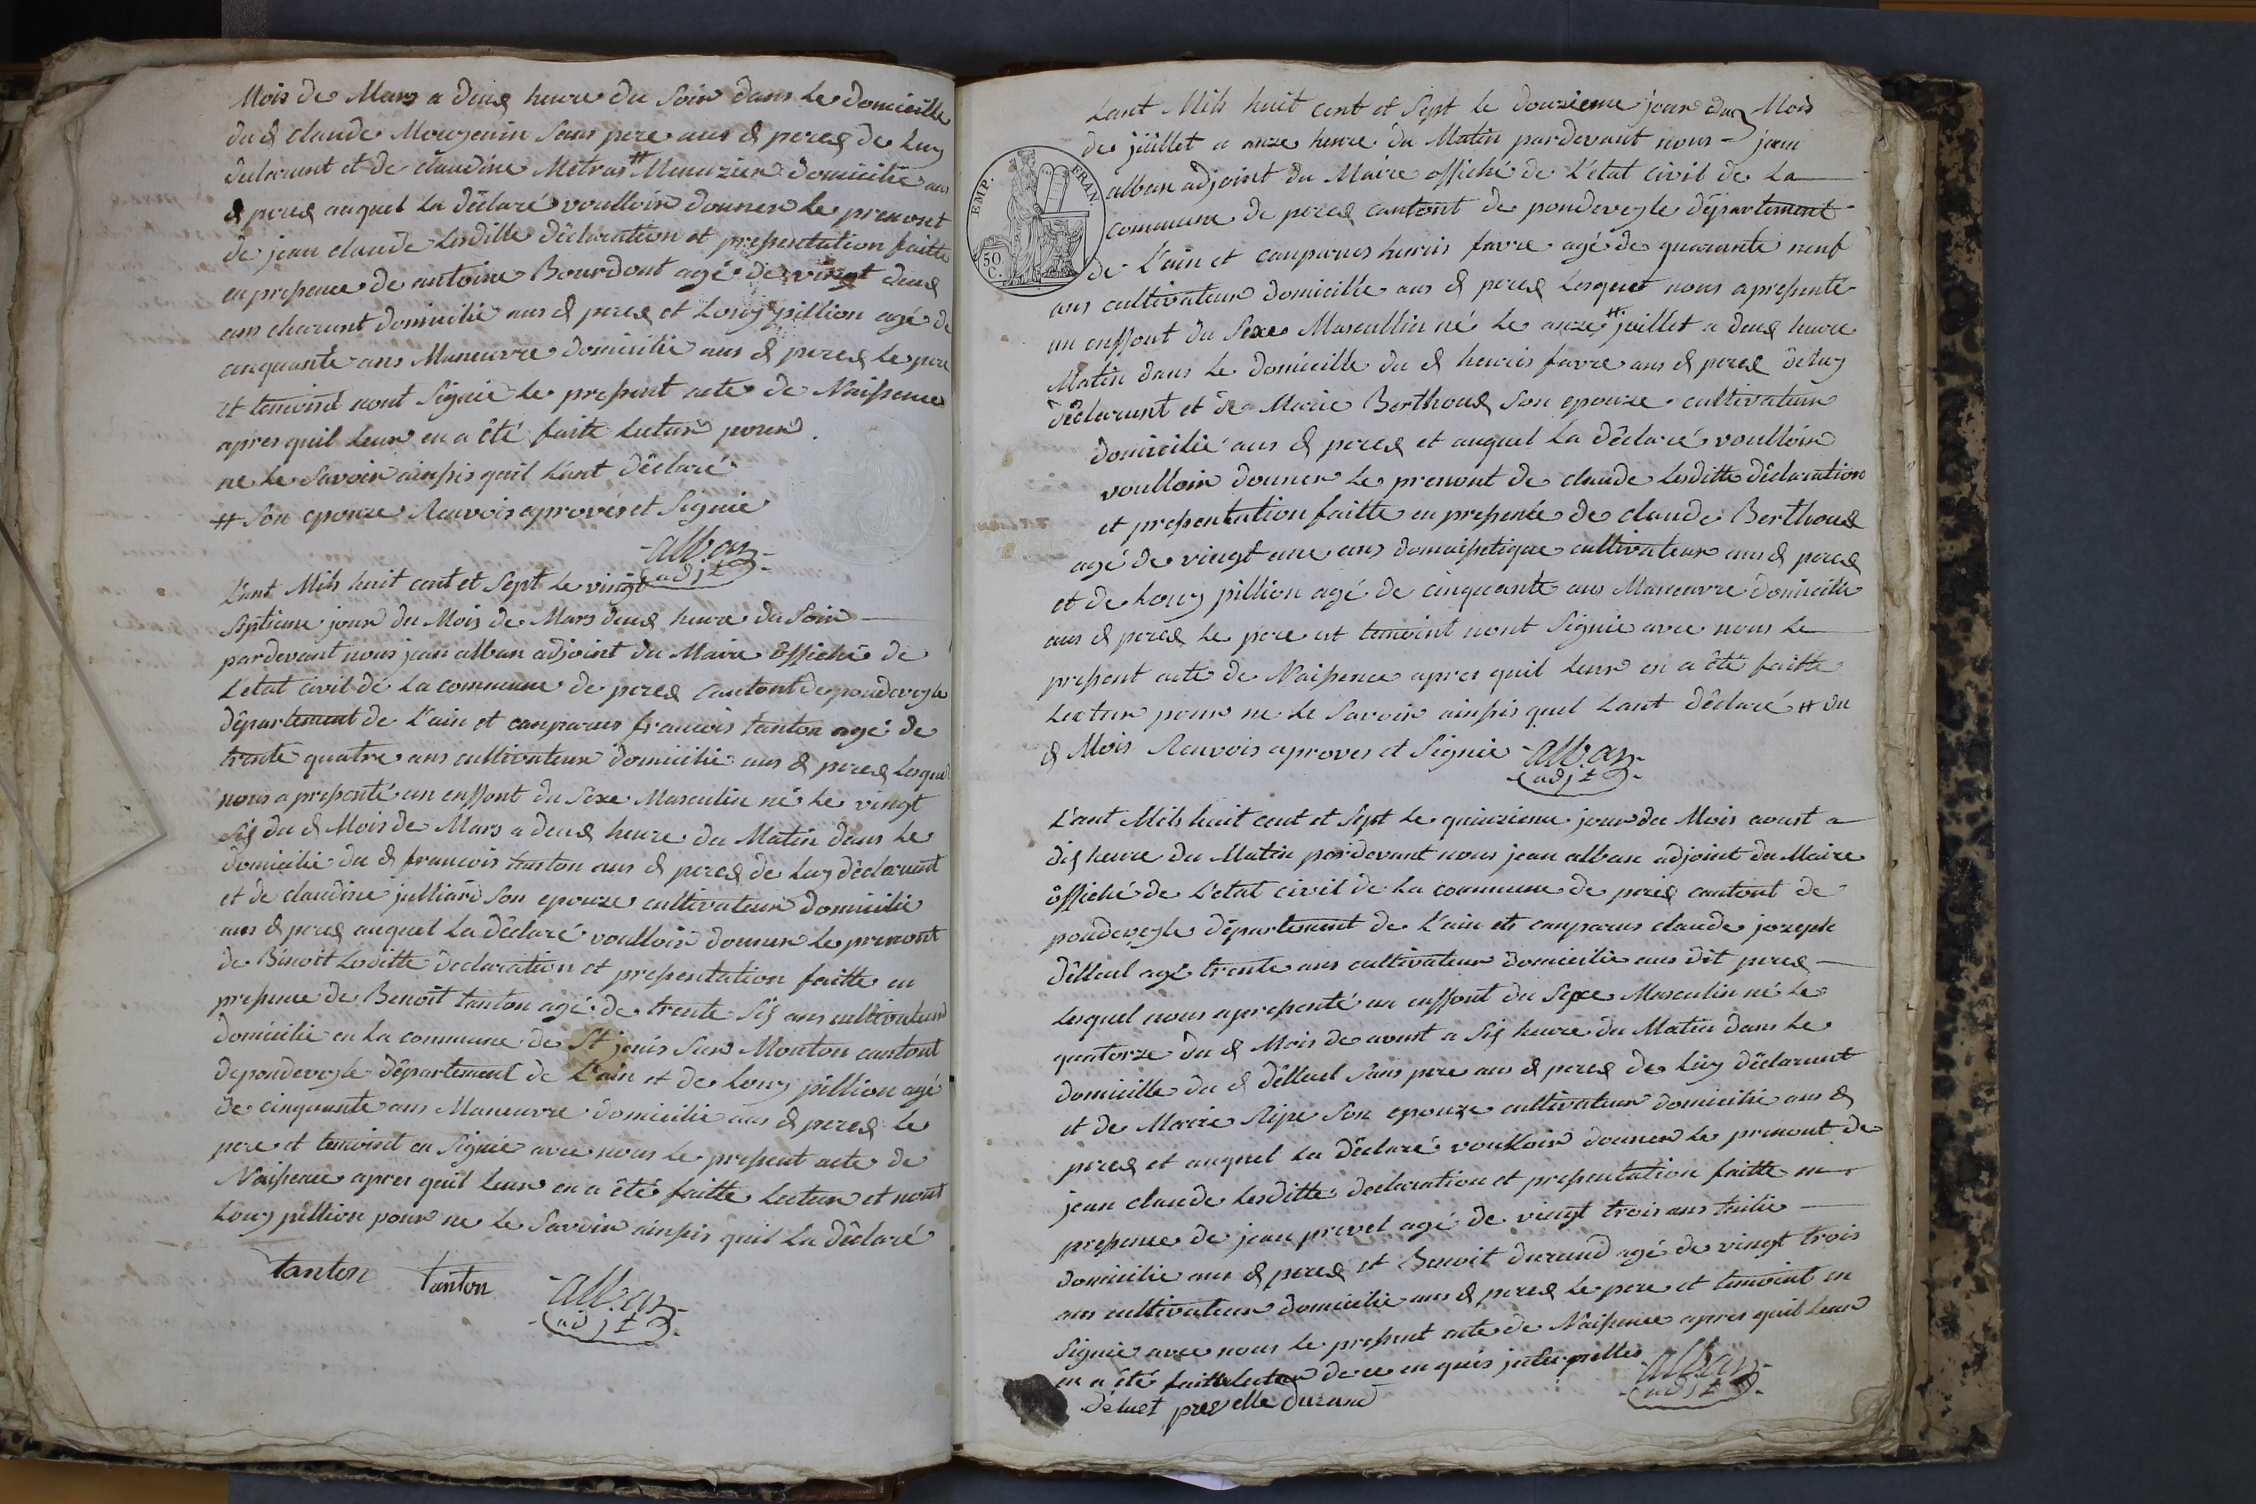 Mois de Mars a deux heure du Soir dans le domicille
du d claude Mougenin Sans pere aus d perex de Luy
declarant et de claudine Metras # Menuzier domicilié aus
d perex auquel La déclaré voulloir donner le prenont
de jean claude Lesditte déclaration et pressentation faitte
en pressence de antoine Bourdont agé de vingt deux
ans charant domicilié aus d perex et Louy pillion agé de
cinquante ans Maneuvre domicilié aus d perex le pere
et temoind nont Signié le pressent acte de Naissence
apres quil Leur en a été faitte Lecture pour
ne le Savoir ainssis quil Lant déclaré
# Son epouze Renvois aprovés et Signié
alban
adjt
L'ant Mils huit cent et Sept le vingt
Septieme jour du Mois de Mars deux heure du Soir
pardevant nous jean alban adjoint du Maire officié de
L'etat civil de La commune de perex cantont de pondeveyle
département de L'ain et comparus francois tanton agé de
trente quatre ans cultivateur domicilié aus d perex Lesquel
nous a pressenté un enffont du Sexe Masculin né le vingt
Six du d Mois de Mars a deux heure du Matin dans le
domicilié du d francois tanton aus d perex de Luy déclarant
et de claudine julliard Son epouze cultivateur domicilié
aus d perex auquel La déclaré voulloir donner le prenont
de Benoit Lesditte declaration et pressentation faitte en
pressence de Benoit tanton agé de trente Six ans cultivateur
domicilié en La commune de St jenis Sur Monton cantont
de pondeveyle département de L'ain et de Louy pillion agé
de cinquante ans Maneuvre domicilié aus d perex le
pere et temoint en Signié avec nous le pressent acte de
Naissence apres quil Leur en a été faitte Lecture et nont
Louy pillion pour ne le Savoir ainssis quil La déclaré
tanton tanton alban
adjt
EMP. FRAN
50
C.
Lant Mils huit cent et Sept le douzieme jour du Mois
de juillet a onze heure du Matin pardevant nous jean
alban adjoint du Maire officié de L'état civil de La
commune de perex cantont de pondeveyle département
de L'ain et comparus henris favre agé de quarante neuf
ans cultivateur domicillié aus d perex Lesquel nous a pressenté
un enffont du Sexe Masculin né Le onze # juillet a deux heure
Matin dans Le domicille du d henris favre aus d perex de Luy
déclarant et de Marie Berthoux Son epouze cultivateur
domicilié aus d perex et auquel La déclaré voulloir
voulloir donner le prenont de claude Lesditte déclaration
et pressentation faitte en pressence de claude Berthoux
agé de vingt une ans domaissetique cultivateur aus d perex
et de Louy pillion agé de cinquante ans Maneuvre domicillié
aus d perex Le pere et temoint nont Signié avec nous Le
pressent acte de Naissence apres quil Leur en a été faitte
Lecture pour ne Le Savoir ainssis quil Lant déclaré # du
d Mois Renvois aproves et Signié alban
adjt
L'ant Mils huit cent et Sept Le quinzieme jour du Mois aoust a
dix heure du Matin pardevant nous jean alban adjoint du Maire
officié de L'etat civil de La commune de perex cantont de
pondeveyle département de L'ain et comparus claude jozeph
délleul agé trente ans cultivateur domicilié aus dit perex
Lesquel nous a pressenté un enffont du Sexe Masculin né Le
quatorze du d Mois de aoust a Six heure du Matin dans Le
domicille du d délleul Sans pere aus d perex de Luy déclarant
et de Marie Ripe Son epouze cultivateur domicilié aus d
perex et auquel La déclaré voulloir donner Le prenont de
jean claude Lesditte declaration et pressentation faitte en
pressence de jean prevel agé de vingt trois ans
domicilié aus d perex et Benoit durand agé de vingt trois
ans cultivateur domicilié aus d perex Le pere et temoint en
Signié avec nous Le pressent acte de Naissence apres quil Leur
en a été faitte Lecture de ce en quis
alban
adjt
déluet durand